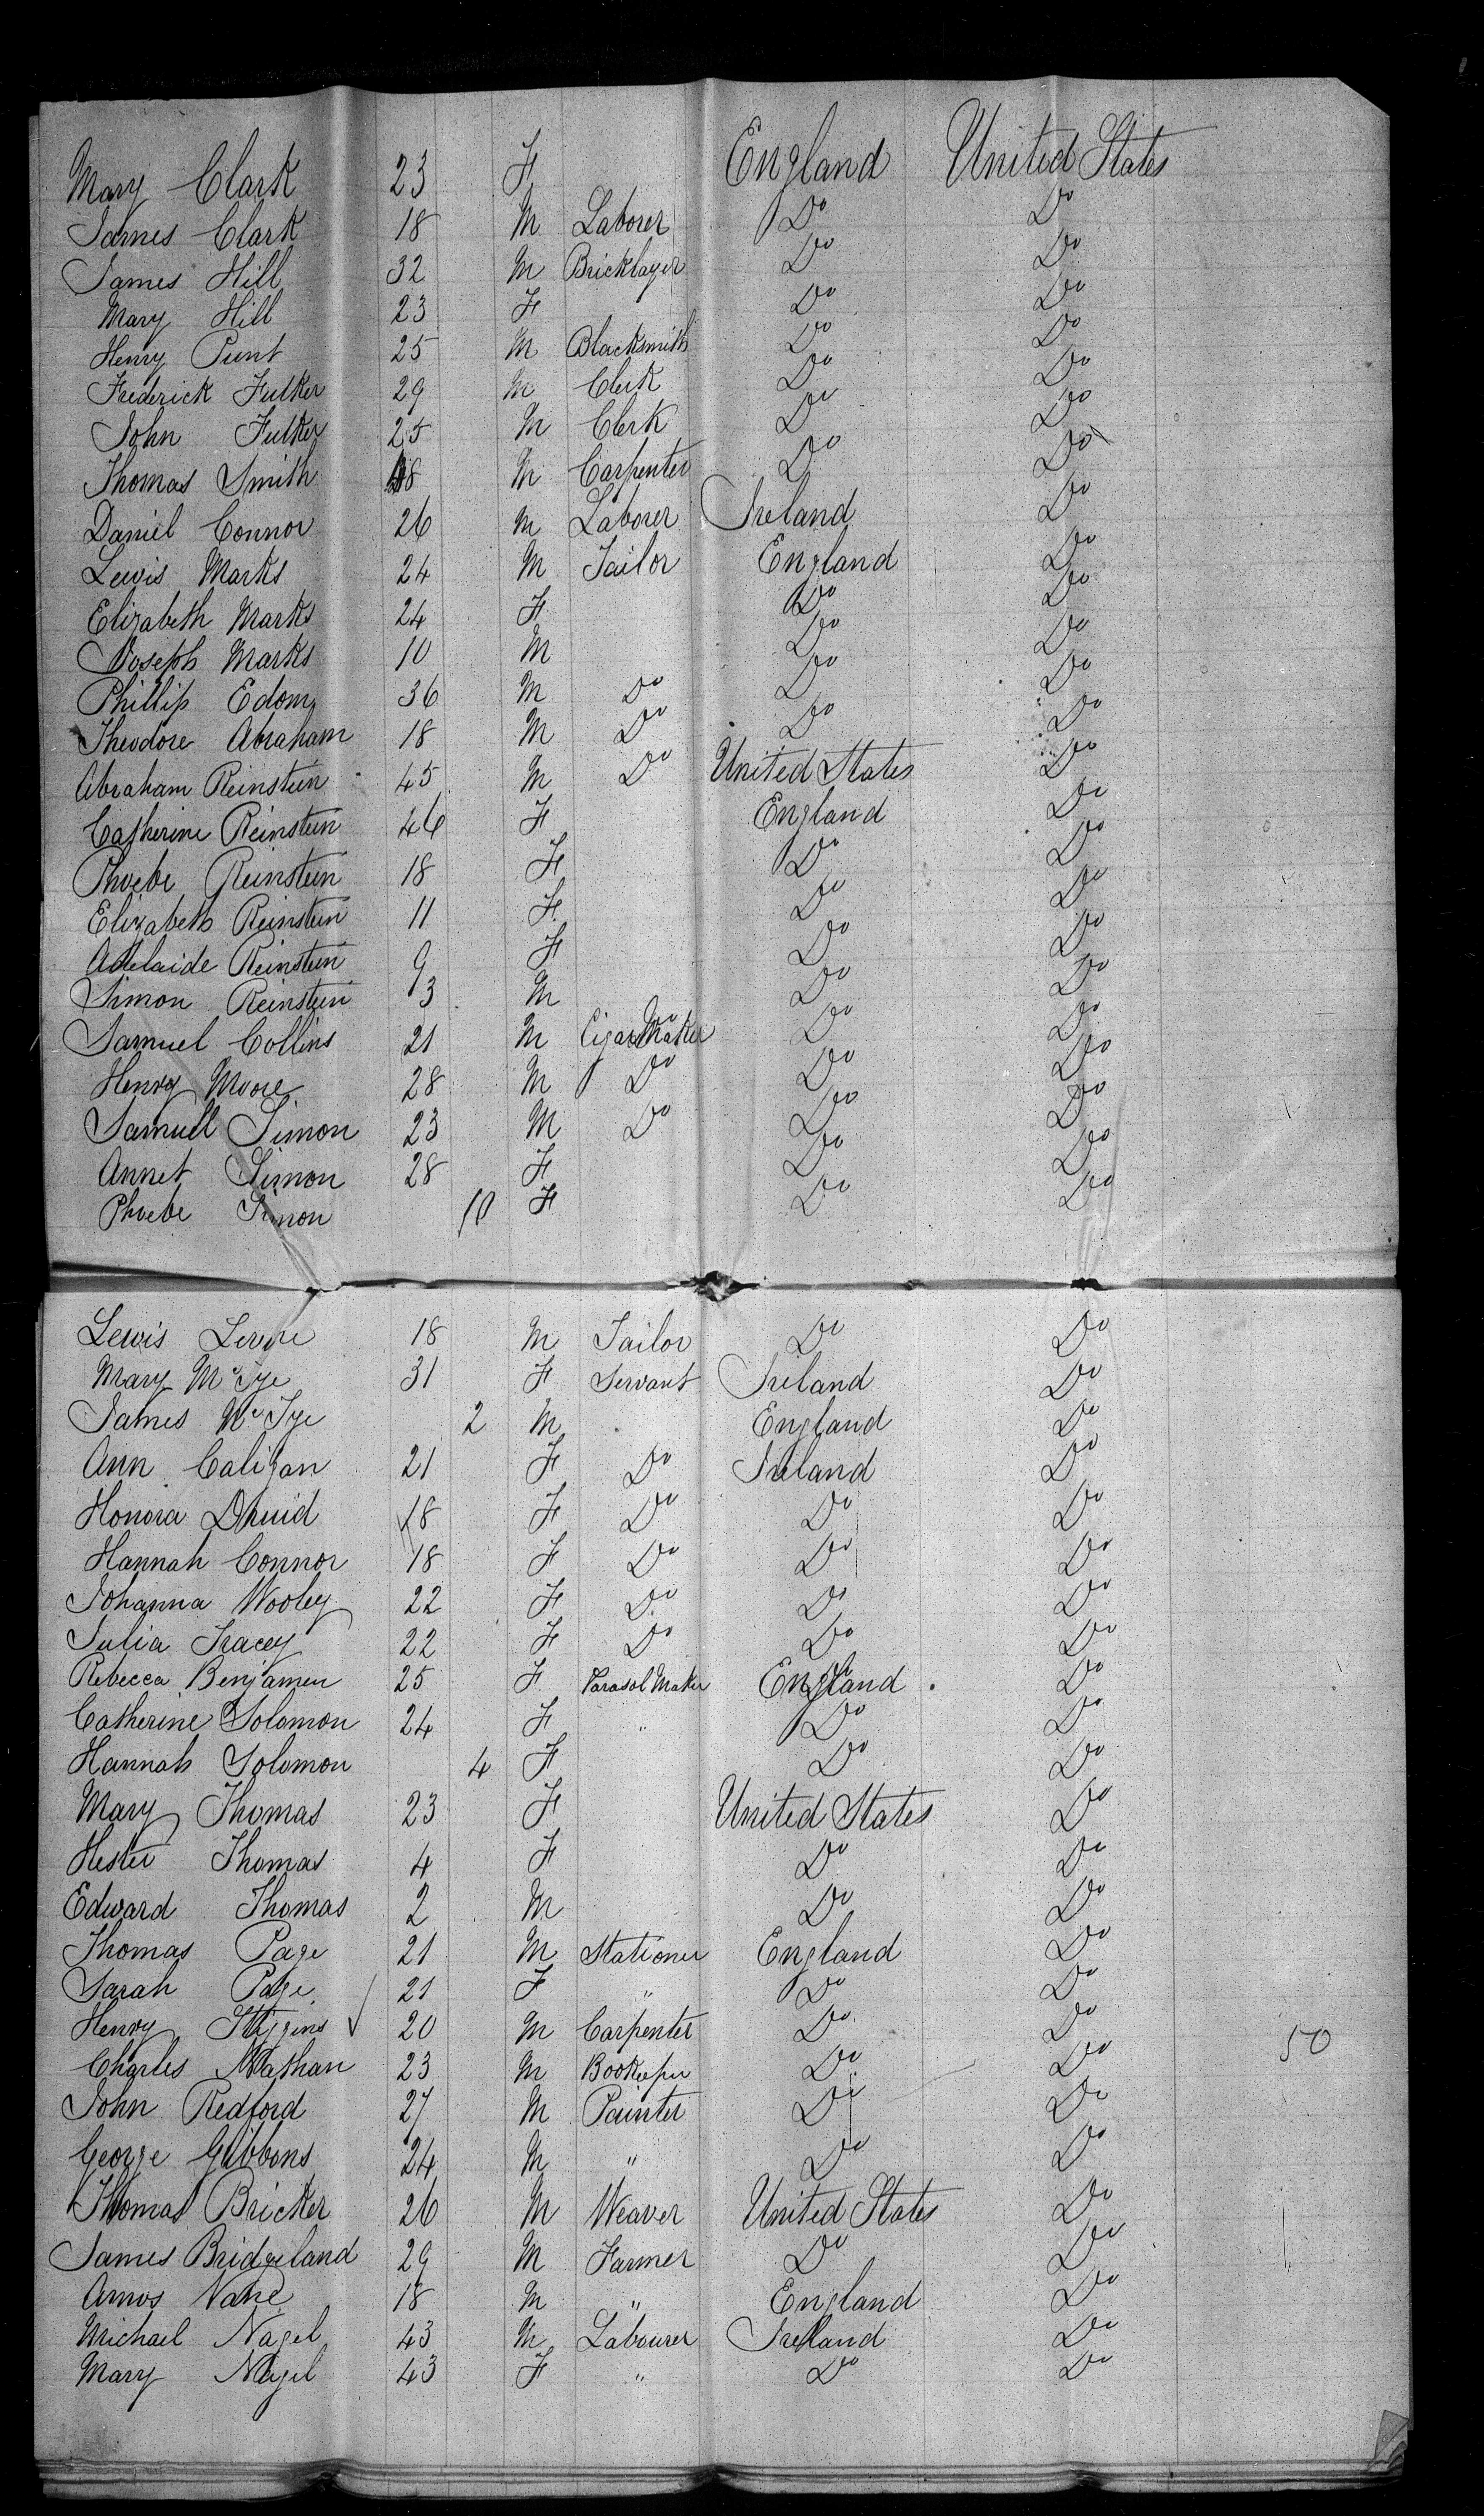 Mary Clark 23 F England United States
James Clark 18 M Laborer Do Do
James Hill 32 M Bricklayer Do Do
Mary Hill 23 F Do Do
Henry Punt 25 M Blacksmith Do Do
Frederick Fulker 29 M Clerk Do Do
John Fulker 25 M Clerk Do Do
Thomas Smith 18 M Carpenter Do Do
Daniel Connor 26 M Laborer Ireland Do
Lewis Marks 24 M Tailor England Do
Elizabeth Marks 24 F Do Do
Joseph Marks 10 M Do Do
Phillip Edom 36 M Do Do Do
Theodore Abraham 18 M Do Do Do
Abraham Reinstein 45 M Do United States Do
Catherine Reinstein 46 F England Do
Phoebe Reinstein 18 F Do Do
Elizabeth Reinstein 11 F Do Do
Adelaide Reinstein 9 F Do Do
Simon Reinstein 3 M Do Do
Samuel Collins 21 M Cigar Maker Do Do
Henry Moore 28 M Do Do Do
Samuel Simon 23 M Do Do Do
Annet Simon 28 F Do Do
Phoebe Simon 10 F Do Do
Lewis 18 M Tailor Do Do
Mary McTye 31 F Servant Ireland Do
James McTye 2 M England Do
Ann Caligan 21 F Do Ireland Do
Honora Druid 18 F Do Do Do
Hannah Connor 18 F Do Do Do
Johanna Wooley 22 F Do Do Do
Julia Tracey 22 F Do Do Do
Rebecca Benjamen 25 F Parasol Maker England Do
Catherine Solomon 24 F " Do Do
Hannah Solomon 4 F Do Do
Mary Thomas 23 F United States Do
Hester Thomas 4 F Do Do
Edward Thomas 2 M Do Do
Thomas Page 21 M Stationer England Do
Sarah Page 21 F " Do Do
Henry Higgins 20 M Carpenter Do Do 50
Charles Nathan 23 M Bookeeper Do Do
John Redford 27 M Painter Do Do
George Gibbons 24 M " Do Do
Thomas Bricker 26 M Weaver United States Do
James Bridgeland 29 M Farmer Do Do
Amos 18 M " England Do
Michael Nagel 43 M Labourer Ireland Do
Mary Nagel 43 F " Do Do